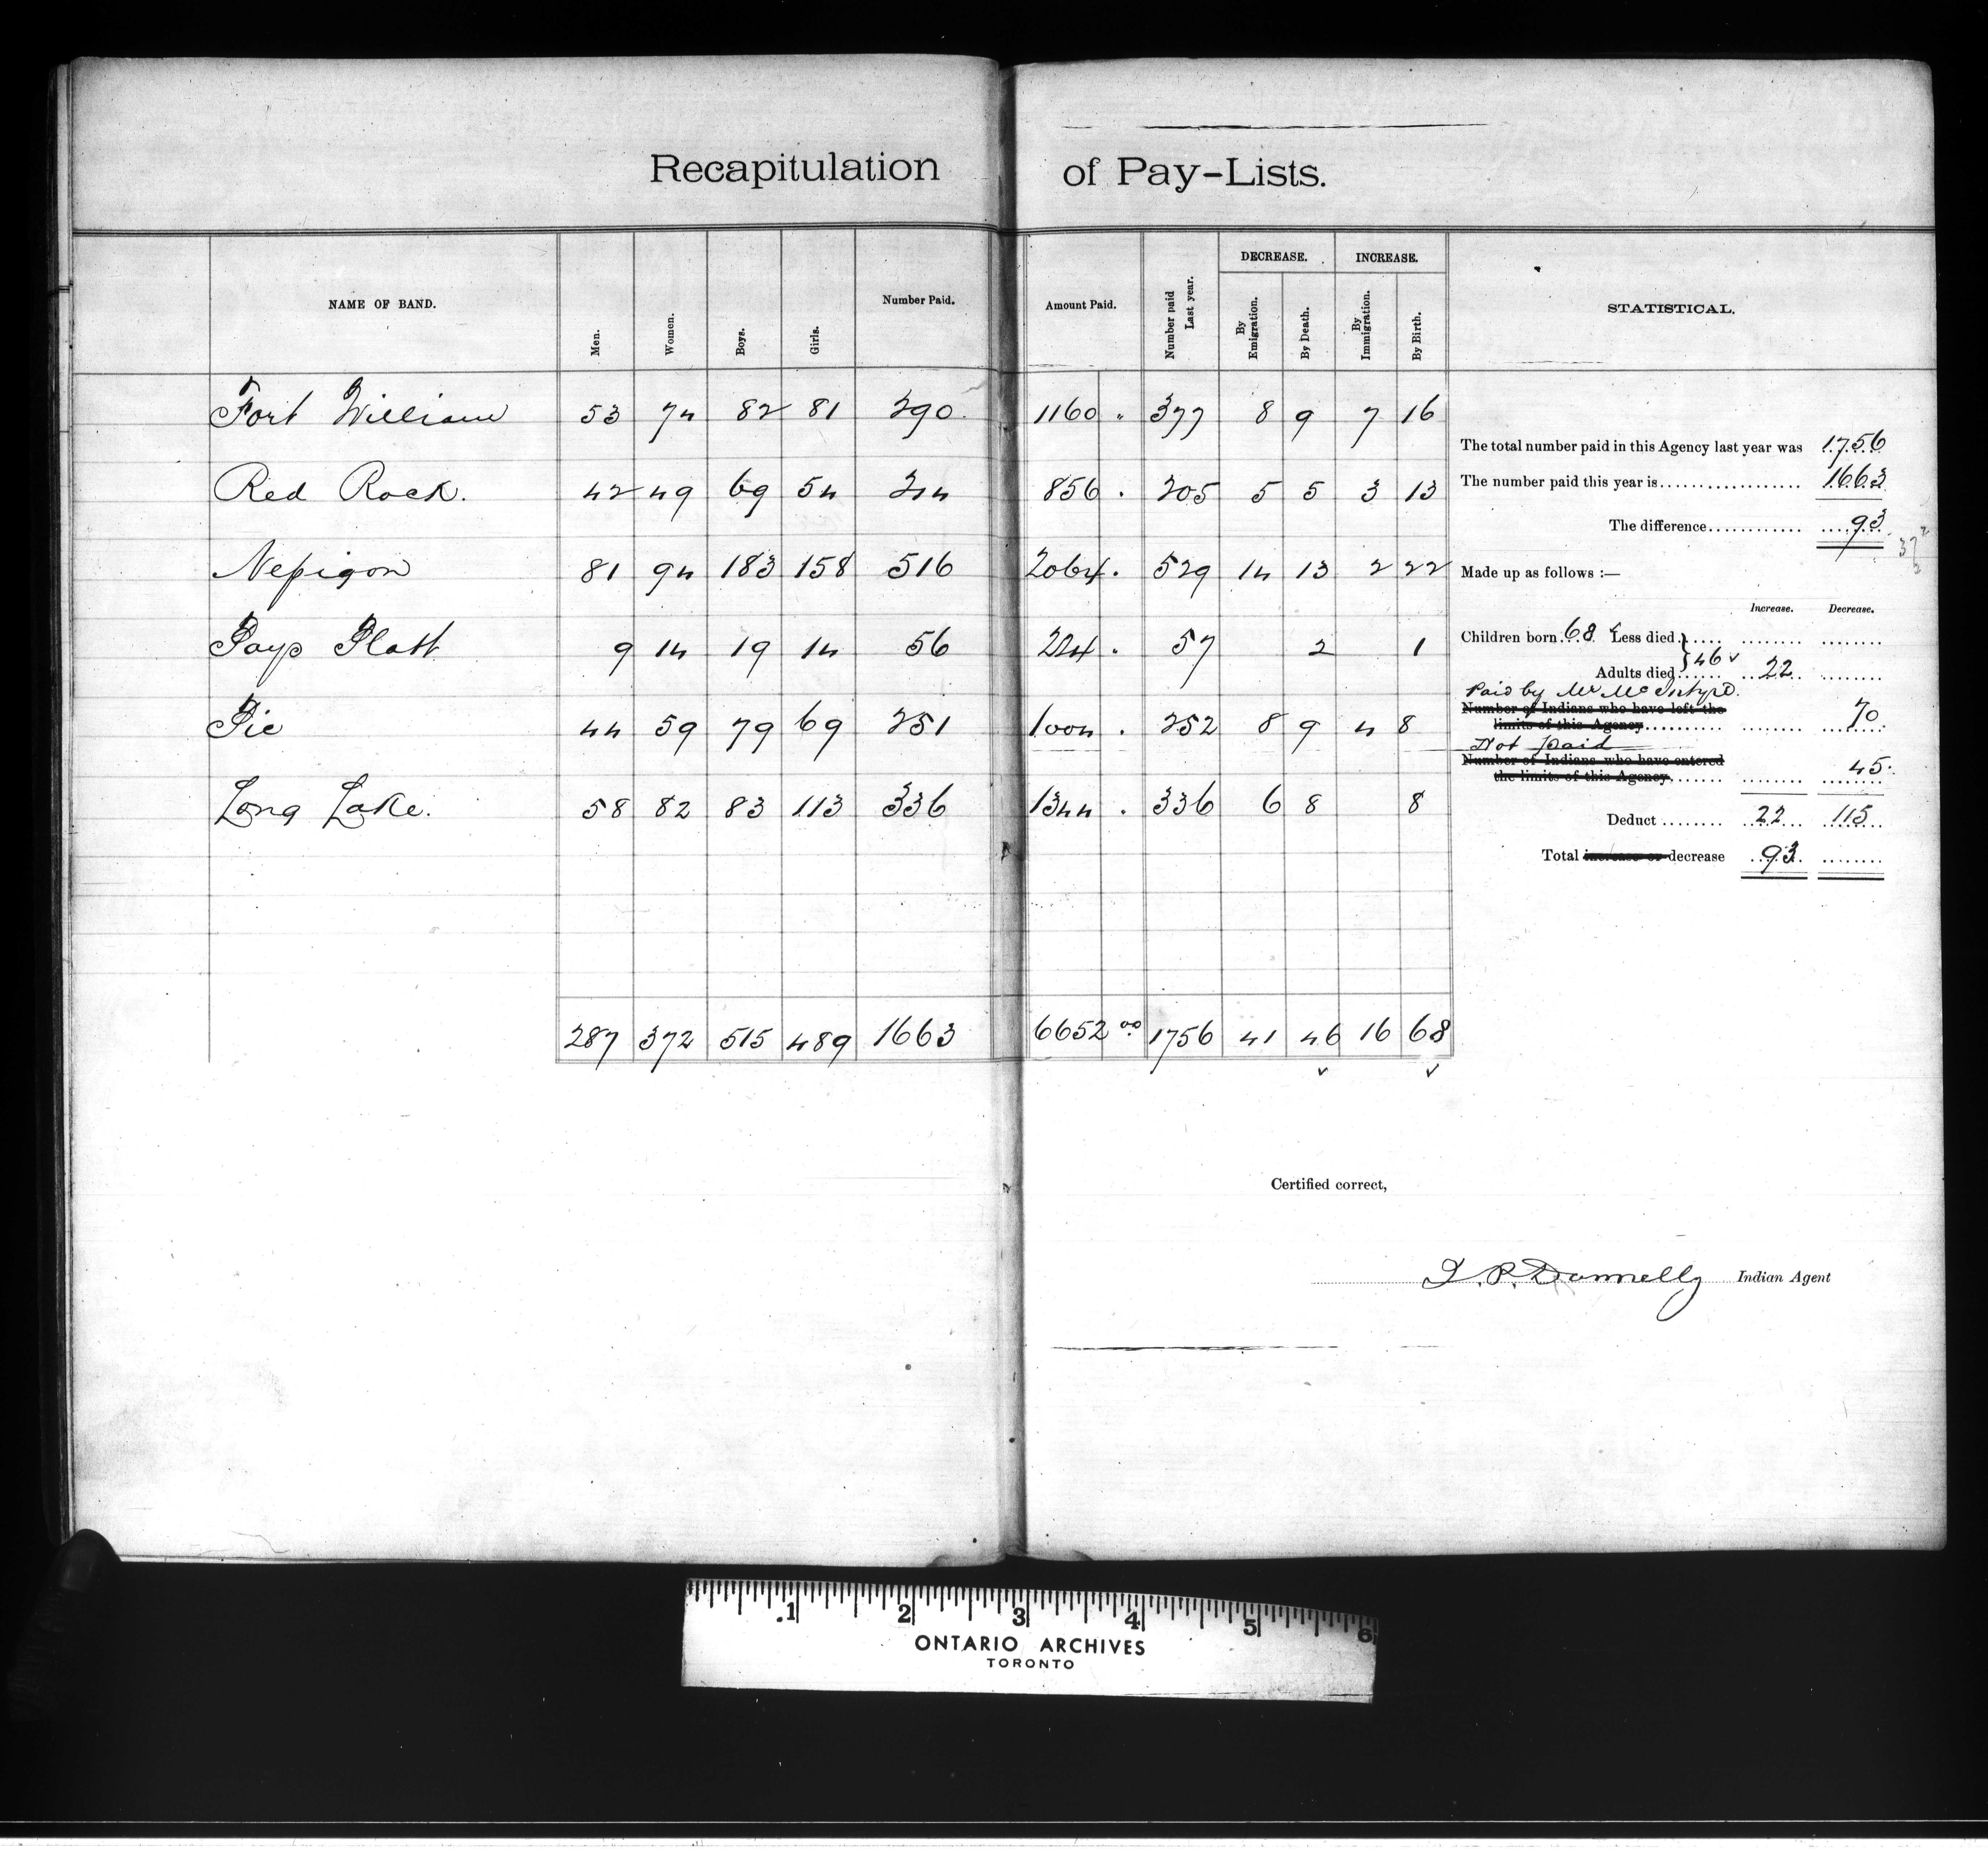 Recapitulation of Pay-Lists.
NAME OF BAND. Men. Women. Boys. Girls. Number Paid. Amount Paid. Number paid Last year. DECREASE. By Emigration. By Death. INCREASE. By Immigration. By Birth. STATISTICAL.
Fort William 53 74 82 81 290. 1160 " 377 8 9 7 16
Red Rock. 42 49 69 54 214 856 . 205 5 5 3 13
Nepigon 81 94 183 158 516 2064 . 529 14 13 2 22
Pays Platt 9 14 19 14 56 224 . 57 2 1
Pic 44 59 79 69 251 1004 . 252 8 9 4 8
Long Lake. 58 82 83 113 336 1344 . 336 6 8 8
287 372 515 489 1663 6652 00 1756 41 46 16 68
The total number paid in this Agency last year was 1756
The number paid this year is 1663
The difference 93
Made up as follows :—
Increase. Decrease.
Children born 68 Less died
Adults died } 46 22
Paid by Mr McIntyre.
Number of Indians who have left the
limits of this Agency 70.
Not paid
Number of Indians who have entered
the limits of this Agency 45.
Deduct 22 115
Total increase or decrease 93
Certified correct,
J. P. Donnelly Indian Agent
1 2 3 4 5 6
ONTARIO ARCHIVES
TORONTO